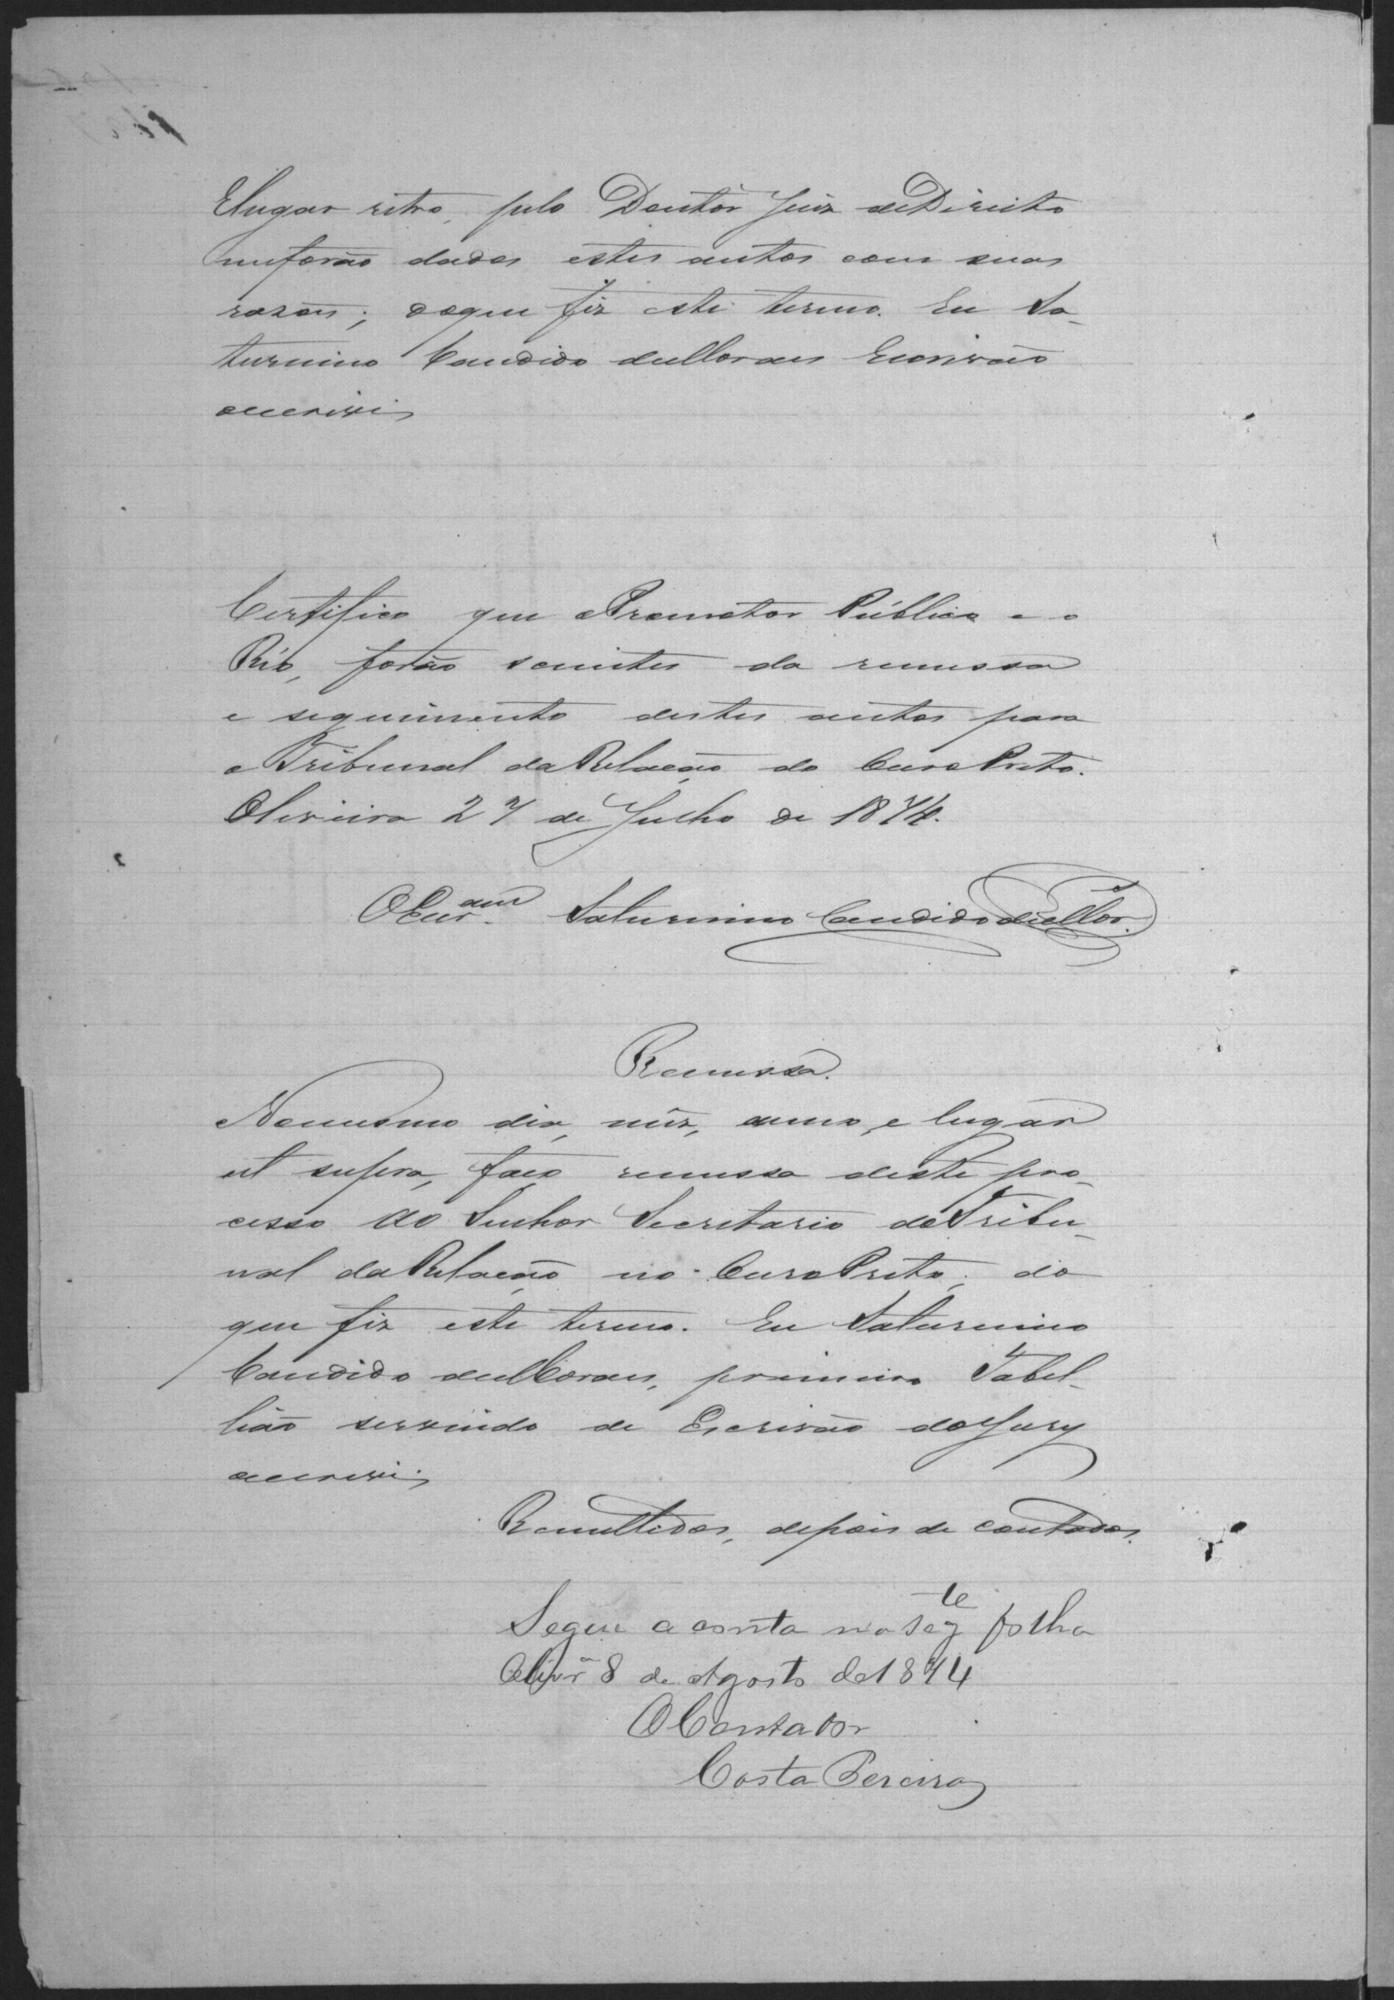 E lugar retro, pelo Doutor Juiz de Direito
me forão dados estes autos com suas
rasoens; doque fiz este termo. Eu Sa-
turnino Candido de Moraes Escrivão
o escrevi
Certifico que o Promotor Público e o
Réo, forão scientes da remessa
e seguimento destes autos para
o Tribunal da Relação do Ouro Preto.
Oliveira 27 de Julho de 1874.
O Escr.am Saturnino Candido de Mor.
Remessa.
No mesmo dia, mez, anno, e lugar
ut supra, faço remessa deste pro-
cesso ao Senhor Secretario do Tribu-
nal da Relação no Ouro Preto, do
que fiz este termo. Eu Saturnino
Candido de Moraes, primeiro Tabel-
lião servindo de Escrivão do Jury
o escrevi.
Remettidos, depois de contados.
Segue a conta na seg.te folha
Olivr.a 8 de Agosto de 1874
O Contador
Costa Pereira